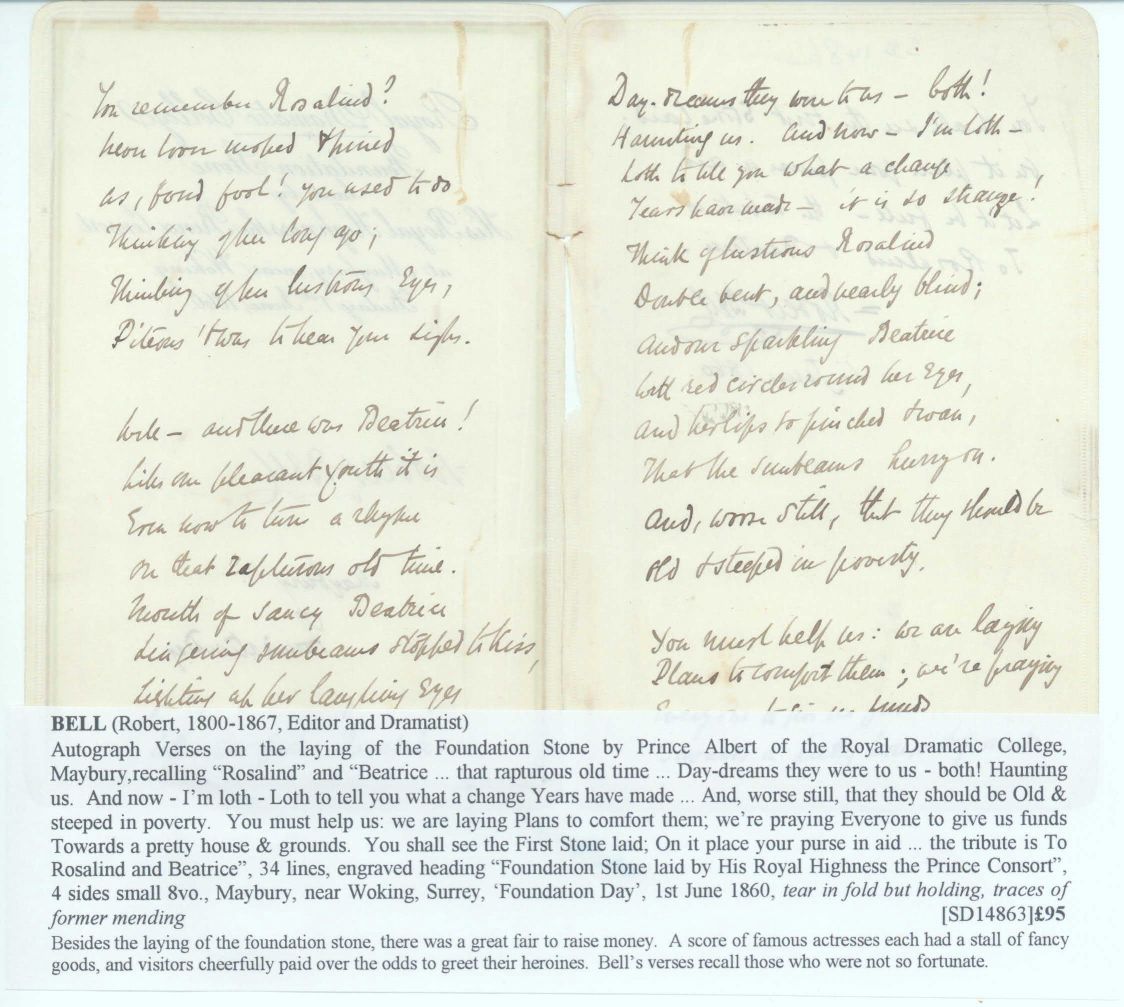 You remember Rosalind?
How you moped & pined
As, fond fool! you used to do,
Thinking of her long ago;
Thinking of her lustrous Eyes,
Piteous 'twas to hear your sighs.
Well – and there was Beatrice!
Like our pleasant youth it is
Even now to turn a rhyme
On that rapturous old time.
Mouth of saucy Beatrice
Lingering sunbeams stopped to kiss,
Lighting up her laughing Eyes
Day-dreams they were to us – both!
Haunting us. And now – I'm loth –
Loth to tell you what a change
Years have made – it is so strange!
Think of lustrous Rosalind
Double bent, and nearly blind;
And our sparkling Beatrice
With red circles round her Eyes,
And her lips so pinched & wan,
That the sunbeams hurry on.
And, worse still, that they should be
Old & steeped in poverty.
You must help us: we are laying
Plans to comfort them; we're praying
funds
BELL (Robert, 1800-1867, Editor and Dramatist)
Autograph Verses on the laying of the Foundation Stone by Prince Albert of the Royal Dramatic College,
Maybury,recalling “Rosalind” and “Beatrice ... that rapturous old time ... Day-dreams they were to us - both! Haunting
us. And now - I’m loth - Loth to tell you what a change Years have made ... And, worse still, that they should be Old &
steeped in poverty. You must help us: we are laying Plans to comfort them; we’re praying Everyone to give us funds
Towards a pretty house & grounds. You shall see the First Stone laid; On it place your purse in aid ... the tribute is To
Rosalind and Beatrice”, 34 lines, engraved heading “Foundation Stone laid by His Royal Highness the Prince Consort”,
4 sides small 8vo., Maybury, near Woking, Surrey, ‘Foundation Day’, 1st June 1860, tear in fold but holding, traces of
former mending [SD14863]£95
Besides the laying of the foundation stone, there was a great fair to raise money. A score of famous actresses each had a stall of fancy
goods, and visitors cheerfully paid over the odds to greet their heroines. Bell’s verses recall those who were not so fortunate.